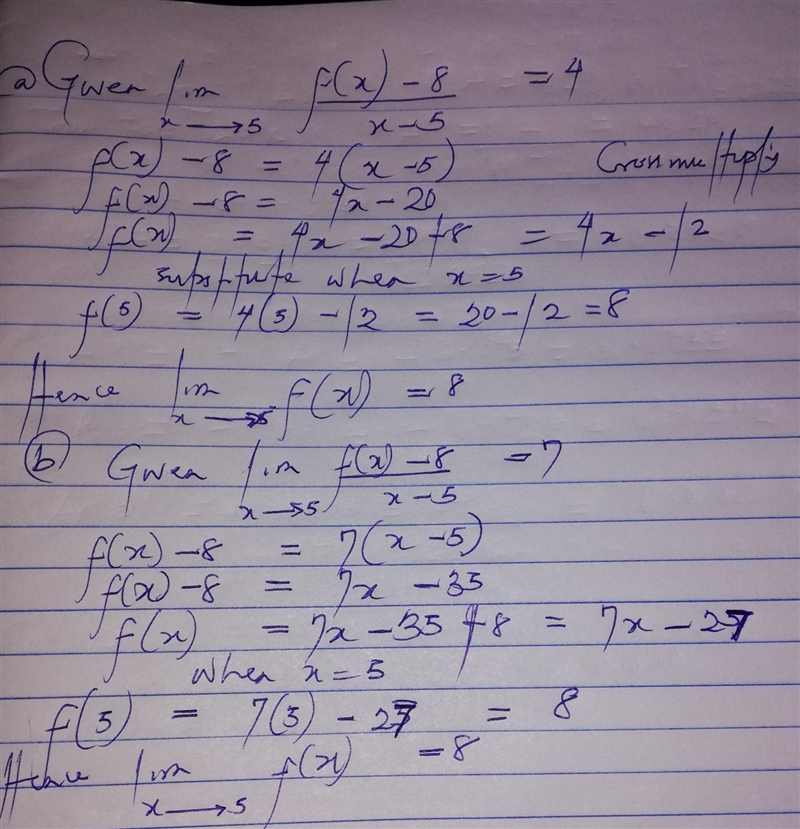 a) Given lim x→5 f(x) - 8 / x - 5 = 4
f(x) - 8 = 4(x - 5) Cross multiply
f(x) - 8 = 4x - 20
f(x) = 4x - 20 + 8 = 4x - 12
substitute when x = 5
f(5) = 4(5) - 12 = 20 - 12 = 8
Hence lim x→5 f(x) = 8
(b) Given lim x→5 f(x) - 8 / x - 5 = 7
f(x) - 8 = 7(x - 5)
f(x) - 8 = 7x - 35
f(x) = 7x - 35 + 8 = 7x - 27
when x = 5
f(5) = 7(5) - 27 = 8
Hence lim x→5 f(x) = 8